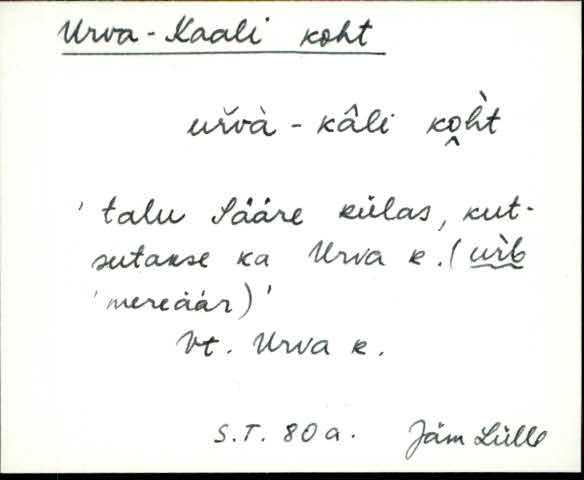 Urva-Kaali koht
uřvà - kâli ko̭h̀t
'talu Sääre külas, kut-
sutakse ka Urva k. (ur̀b
'mereäär)'
Vt. Urva k.
S.T. 80 a. Jäm Lülle